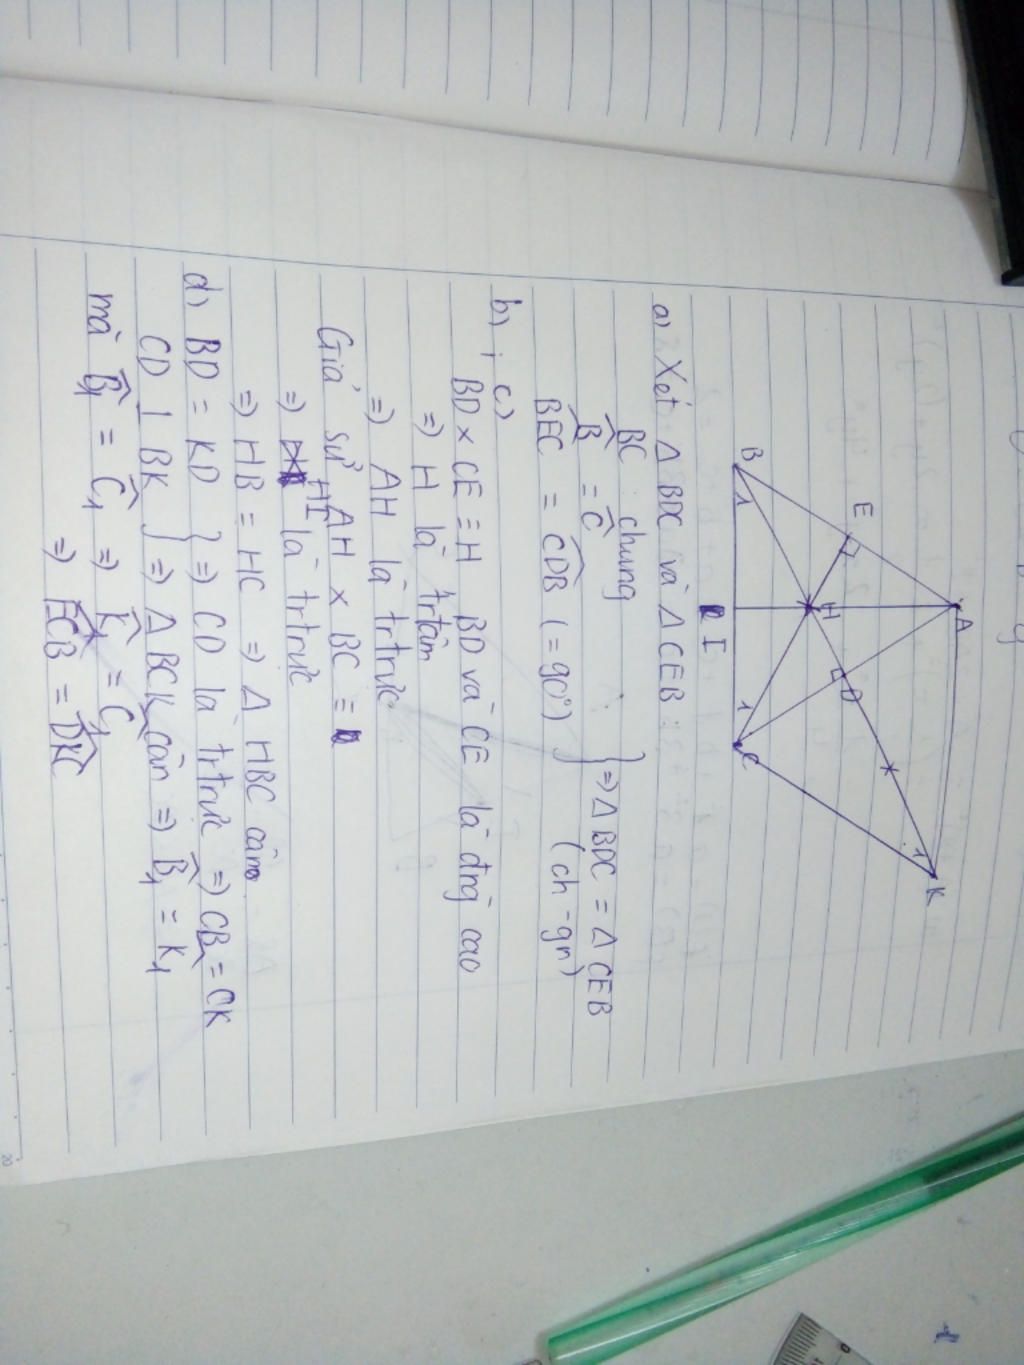 A
E
D
K
1
H
B
1
1
C
I
a) Xét Δ BDC và Δ CEB :
BC : chung
B̂ = Ĉ
BEC = CDB (= 90°) } => Δ BDC = Δ CEB
(ch - gn)
b) ; c)
BD x CE ≡ H BD và CE là đng cao
=> H là trtâm
=> AH là trtrực
Giả sử AH x BC ≡
=> HI là trtrực
=> HB = HC => Δ HBC cân
d) BD = KD } => CD là trtrực => CB = CK
CD ⊥ BK } => Δ BCK cân => B̂₁ = K̂₁
mà B̂₁ = Ĉ₁ => K̂₁ = Ĉ₁
=> ECB = DKC
20